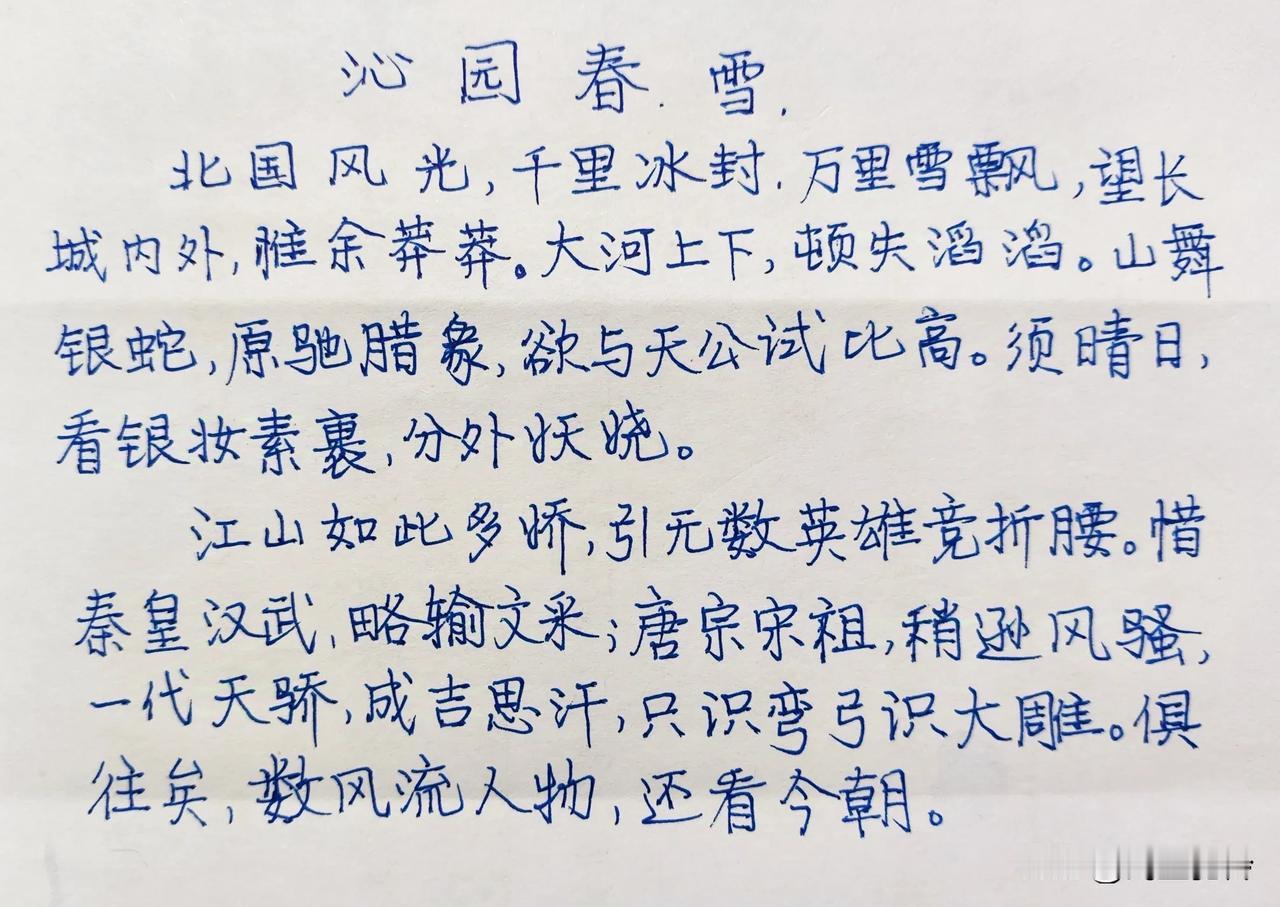 沁园春.雪.
北国风光,千里冰封.万里雪飘,望长
城内外,惟余莽莽。大河上下,顿失滔滔。山舞
银蛇,原驰腊象,欲与天公试比高。须晴日,
看银妆素裹,分外妖娆。
江山如此多娇,引无数英雄竞折腰。惜
秦皇汉武,略输文采;唐宗宋祖,稍逊风骚,
一代天骄,成吉思汗,只识弯弓识大雕。俱
往矣,数风流人物,还看今朝。